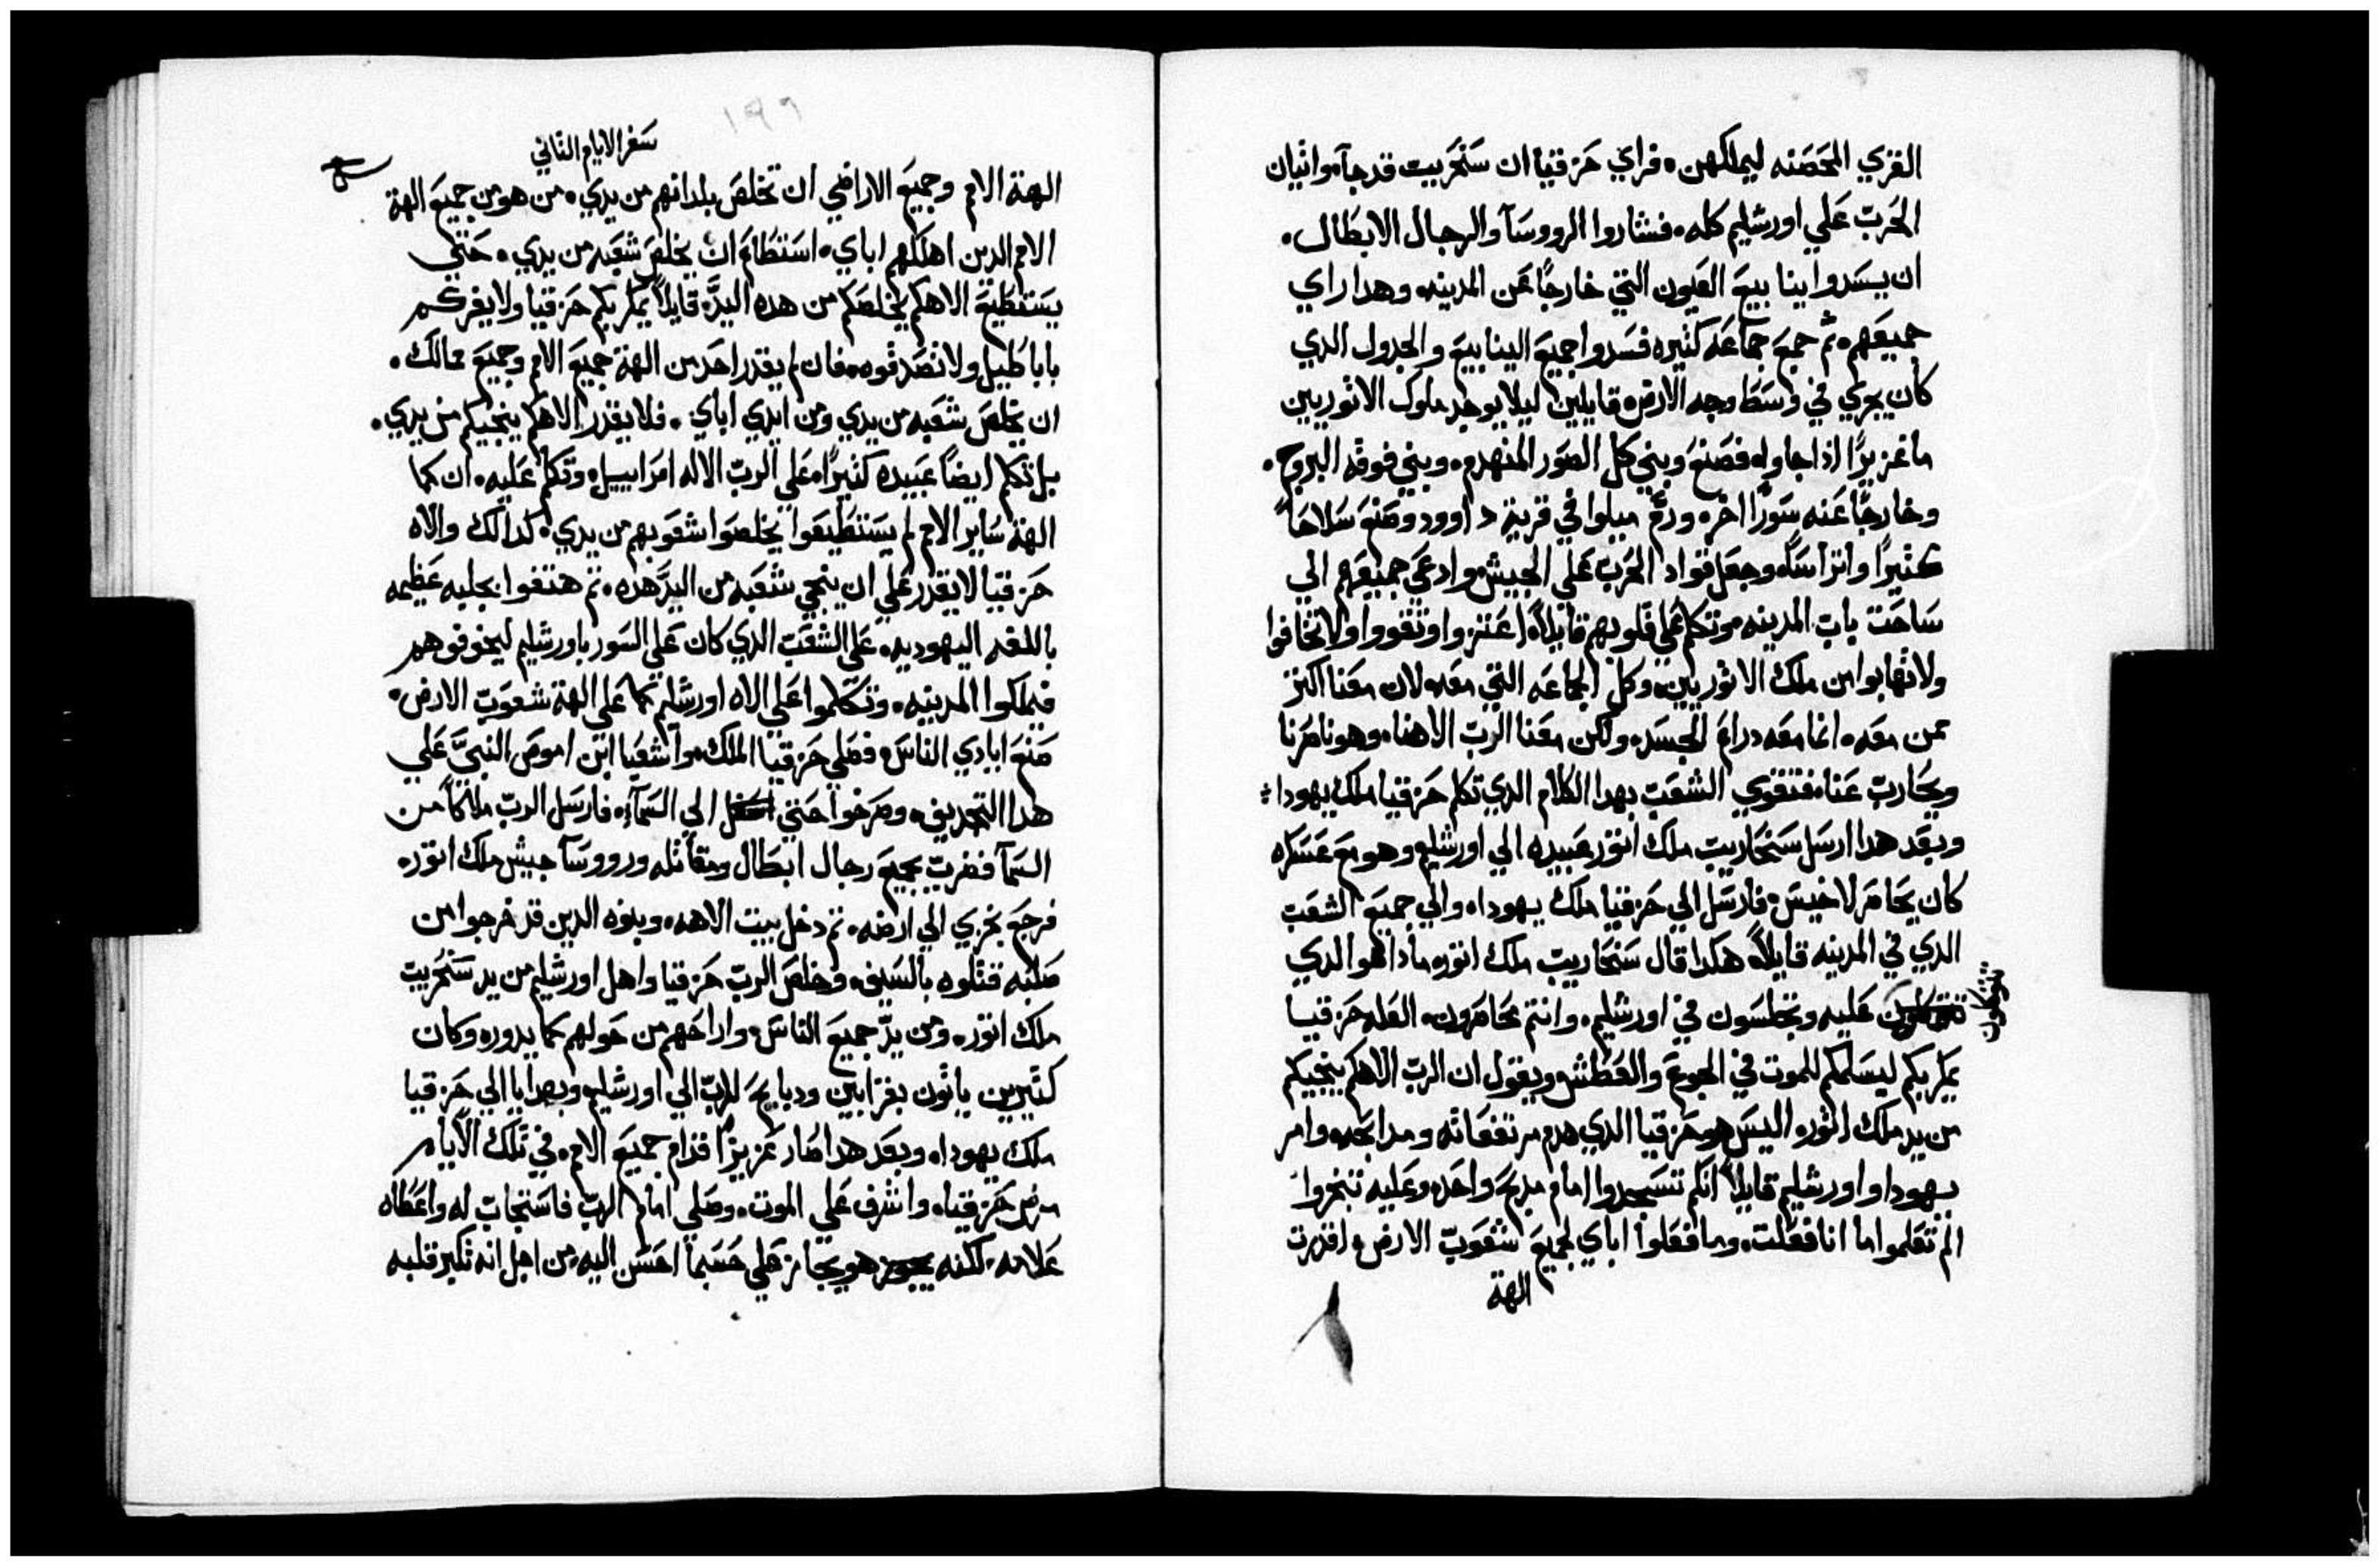 القري المحصنه ليملكهن. فراي حزقيا ان سنحريب قد جآ. واتيان
الحرب علي اورشليم كله. فشاروا الرووسآ والرجال الابطال.
ان يسدوا ينابيع العيون التي خارجًا عن المدينه. وهدا راي
جميعهم. ثم جمع جماعه كثيره فسدوا جميع الينابيع والجدول الدي
كان يجري في وسط وجه الارض. قايلين ليلا يوجد ملوك الاثوريين
ما غزيرًا اذا جاوا. فصنع وبني كل الصور المنهدم. وبني فوقه البروج.
وخارجًا عنه سورًا اخر. ورمّ ميلوا في قرية داوود وصنع سلاحًا
كثيرًا واتراسًا. وجعل قواد الحرب علي الجيش وادعي جميعهم الي
ساحت باب المدينه. وتكلم علي قلوبهم قايلاً. اعتزوا وتقووا ولا تخافوا
ولا تهابوا من ملك الاثوريين. وكل الجماعه التي معه. لان معنا اكتر
ممن معه. انما معه دراع الجسد. ولكن معنا الرب الاهنا. وهو ناصرنا
ويحارب عنا. فتقوي الشعب بهدا الكلام الدي تكلم حزقيا ملك يهودا:
وبعد هدا ارسل سنحاريب ملك اتور عبيده الي اورشليم. وهو مع عسكره
كان يحاصر لاخيس. فارسل الي حزقيا ملك يهودا. والي جميع الشعب
الدي في المدينه قايلاً. هكدا قال سنحاريب ملك اتور. مادا هو الدي
تتوكلون عليه وتجلسون في اورشليم. وانتم محاصرون. العله حزقيا
تتوكلون
يمكر بكم ليسلمكم للموت في الجوع والعطش. ويقول ان الرب الاهكم ينجيكم
من يد ملك اتور. اليس هو حزقيا الدي هدم مرتفعاته ومدابحه. وامر
يهودا واورشليم قايلاً انكم تسجدوا امام مدبح واحد. وعليه تبخروا
الم تعلموا ما انا فعلت. وما فعلوا اباي لجميع شعوب الارض. اقدرت
الهة
١٩٦
سفر الايام الثاني
الهة الامم وجميع الاراضي ان تخلص بلدانهم من يدي. من هو من جميع الهة
الامم الدين اهلكهم اباي. استطاع ان يخلص شعبه من يدي. حتي
يستطيع الاهكم يخلصكم من هده اليد. قايلاً يمكر بكم حزقيا ولا يغركم
باباطيل ولا تصدقوه. فان لم يقدر احد من الهة جميع الامم وجميع ممالك.
ان يخلص شعبه من يدي ومن ايدي اباي. فلا يقدر الاهكم ينجيكم من يدي.
بل تكلم ايضًا عبيده كثيرًا. علي الرب الاله اسراييل. وتكلم عليه. ان كما
الهة ساير الامم لم يستطيعوا يخلصوا شعوبهم من يدي. كدالك والاه
حزقيا لا يقدر علي ان ينجي شعبه من اليد هده. ثم هتفوا بجلبه عظيمه
باللغه اليهوديه. علي الشعب الدي كان علي السور باورشليم ليخوفوهم
فيملكوا المدينه. وتكلموا علي الاه اورشليم كما علي الهة شعوب الارض.
صنع ايادي الناس. فصلي حزقيا الملك. واشعيا ابن اموص النبي علي
هدا التجديف. وصرخوا حتي الي السمآء. فارسل الرب ملاكًا من
السمآ فضرب جميع رجال ابطال ومقاتله ورووسآ جيش ملك اتور.
فرجع بخزي الي ارضه. ثم دخل بيت الاهه. وبنوه الدين قد خرجوا من
صلبه قتلوه بالسيف. وخلص الرب حزقيا واهل اورشليم من يد سنحريب
ملك اتور. ومن يد جميع الناس. واراحهم من حولهم كما يدوره وكان
كثيرين ياتون بقرابين ودبايح للرب الي اورشليم. وبهدايا الي حزقيا
ملك يهودا. وبعد هدا صار عزيزًا قدام جميع الامم. في تلك الايام
مرض حزقيا. واشرف علي الموت. وصلي امام الرب فاستجاب له واعطاه
علامه. لكنه هو يجاز علي حسبما احسن اليه. من اجل انه تكبر قلبه